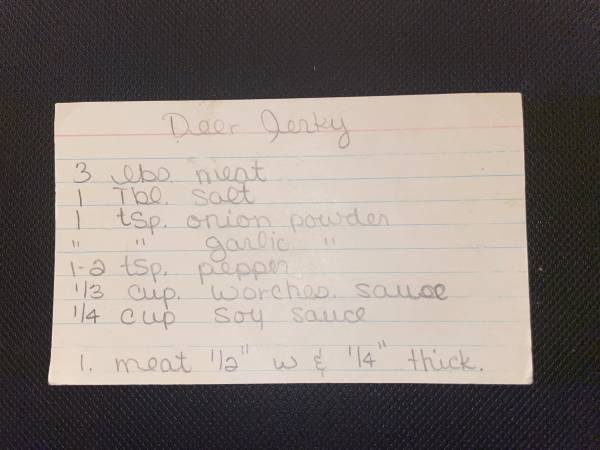 Deer Jerky
3 lbs. meat
1 Tbl. salt
1 tsp. onion powder
" " garlic "
1-2 tsp. pepper
1/3 cup. worches. sauce
1/4 cup soy sauce
1. meat 1/2" w & 1/4" thick.